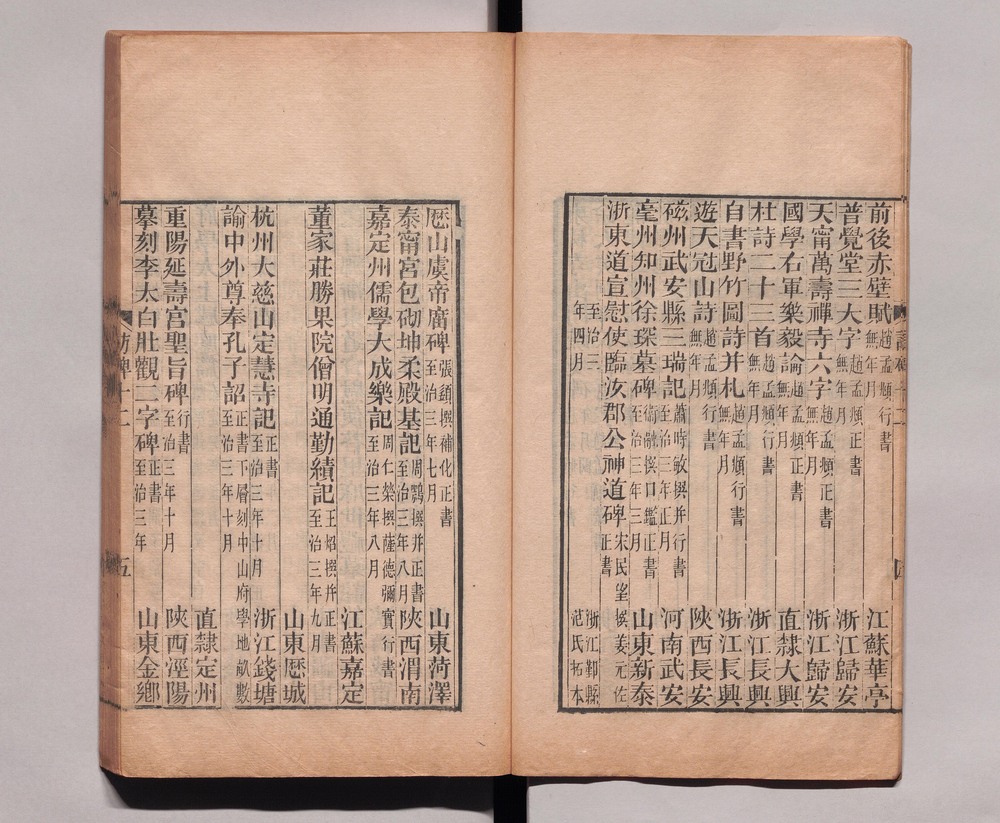 前後赤壁賦 趙孟頫行書 無年月 江蘇華亭
普覺堂三大字 趙孟頫正書 無年月 浙江歸安
天甯萬壽禪寺六字 趙孟頫正書 無年月 浙江歸安
國學右軍樂毅論 趙孟頫正書 無年月 直隸大興
杜詩二十三首 趙孟頫行書 無年月 浙江長興
自書野竹圖詩并札 趙孟頫行書 無年月 浙江長興
遊天冠山詩 趙孟頫行書 無年月 陝西長安
磁州武安縣三瑞記 蕭時敏撰并行書 至治三年正月 河南武安
毫州知州徐琛墓碑 衛融撰口鑑正書 至治三年三月 山東新泰
浙東道宣慰使臨汝郡公神道碑 宋民望撰姜元佐正書
至治三年四月 浙江鄞縣范氏拓本
訪碑十二
歷山虞帝廟碑 張頦撰補化正書 至治三年七月 山東菏澤
泰甯宮包砌坤柔殿基記 周鸚撰并正書 至治三年八月 陝西渭南
嘉定州儒學大成樂記 周仁榮撰薩德彌實行書 至治三年八月
江蘇嘉定
董家莊勝果院僧明通勤績記 王炤撰并正書 至治三年九月
山東歷城
杭州大慈山定慧寺記 正書 至治三年十月 浙江錢塘
諭中外尊奉孔子詔 正書下層刻中山府學地畝數 至治三年十月
直隸定州
重陽延壽宮聖旨碑 行書 至治三年十月 陝西涇陽
摹刻李太白壯觀二字碑 正書 至治三年 山東金鄉
訪碑十二
五